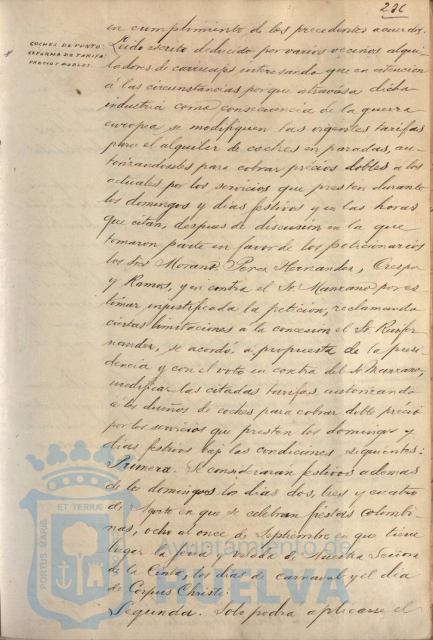 226
COCHES DE PUNTO.
REFORMA DE TARIFA.
PRECIOS DOBLES.
en cumplimiento de los precedentes acuerdos.
Leido escrito deducido por varios vecinos alqui-
ladores de carruajes interesando que en atención
á las circunstancias porque atraviesa dicha
industria como consecuencia de la guerra
europea se modifiquen las vigentes tarifas
para el alquiler de coches en paradas, au-
torizandoseles para cobrar precios dobles a los
actuales por los servicios que presten durante
los domingos y dias festivos y en las horas
que citan, despues de discusion en la que
tomaron parte en favor de los peticionarios
los Sres Morano, Perez Hernandez, Crespo
y Ramos, y en contra el Sr Manzano por es-
timar injustificada la peticion, reclamando
ciertas limitaciones a la concesion el Sr Ruifer-
nandez, se acordó á propuesta de la presi-
dencia y con el voto en contra del Sr Manzano,
modificar las citadas tarifas, autorizando
a los dueños de coches para cobrar doble precio
por los servicios que presten los domingos y
dias festivos bajo las condiciones siguientes:
Primera. Se considerarán festivos ademas
de los domingos los dias dos, tres y cuatro
de Agosto en que se celebran fiestas colombi-
nas, ocho al once de Septiembre en que tiene
lugar la feria y velada de Nuestra Señora
de la Cinta, los dias de carnaval y el dia
de Corpus Christi.
Segunda. Solo podrá aplicarse el
ET TERRÆ
PORTUS MARIS
CUSTODIA
Ayuntamiento de
HUELVA